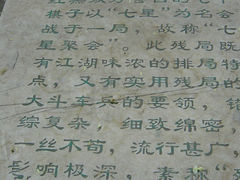 棋子以“七星”为名会
战于一局，故称“七
星聚会”。此残局既
有江湖味浓的排局特
点，又有实用残局的
大斗车兵的要领，错
综复杂，细致绵密
一丝不苟，流行甚广，
影响极深，素称“